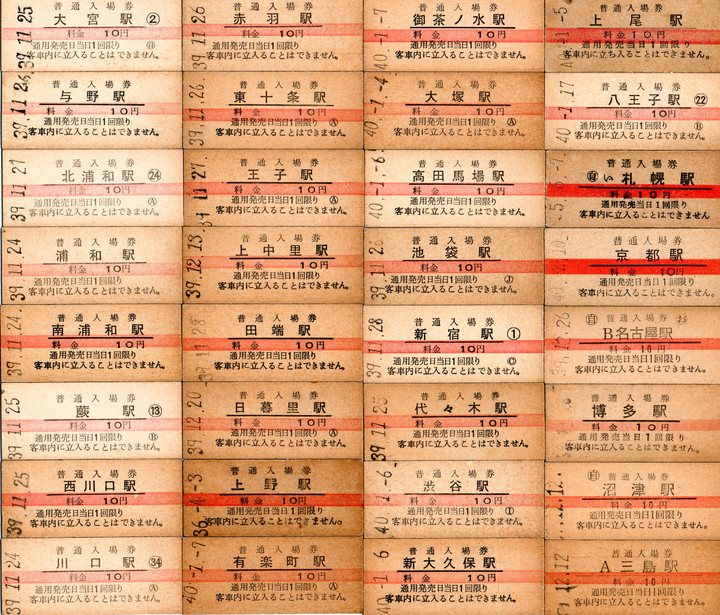 25
大宮駅 ②
料金 10円
通用発売日当日1回限り Ⓑ
客車内に立入ることはできません。
39.11.26
赤羽駅
料金 10円
通用発売日当日1回限り
客車内に立入ることはできません。
-1.-7
御茶ノ水駅
料金 10円
通用発売日当日1回限り
客車内に立入ることはできません。
-5
上尾駅
料金 10円
通用発売日当日1回限り
客車内に立ち入ることはできません。
39.11.26
普通入場券
与野駅
料金 10円
通用発売日当日1回限り
客車内に立入ることはできません。
39.11.26
普通入場券
東十条駅
料金 10円
通用発売日当日1回限り Ⓐ
客車内に立入ることはできません。
40.-1.-4
普通入場券
大塚駅
料金 10円
通用発売日当日1回限り Ⓐ
客車内に立入ることはできません。
40.-1.17
普通入場券
八王子駅 ㉒
料金 10円
通用発売日当日1回限り Ⓑ
客車内に立入ることはできません。
39.11.21
普通入場券
北浦和駅 ㉔
料金 10円
通用発売日当日1回限り Ⓐ
客車内に立入ることはできません。
39.11.27
普通入場券
王子駅
料金 10円
通用発売日当日1回限り Ⓐ
客車内に立入ることはできません。
40.-1.-6
普通入場券
高田馬場駅
料金 10円
通用発売日当日1回限り
客車内に立入ることはできません。
普通入場券
㊀い札幌駅
料金 10円
通用発売日当日1回限り
客車内に立入ることはできません
39.11.24
普通入場券
浦和駅
料金 10円
通用発売日当日1回限り
客車内に立入ることはできません。
39.12.13
普通入場券
上中里駅
料金 10円
通用発売日当日1回限り
客車内に立入ることはできません。
39.11.26
普通入場券
池袋駅
料金 10円
通用発売日当日1回限り Ⓙ
客車内に立入ることはできません。
普通入場券
京都駅
料金 10円
通用発売日当日1回限り
客車内に立入ることはできません。
39.11.24
普通入場券
南浦和駅
料金 10円
通用発売日当日1回限り
客車内に立入ることはできません。
11.28
普通入場券
田端駅
料金 10円
通用発売日当日1回限り
客車内に立入ることはできません。
39.11.28
普通入場券
新宿駅 ①
料金 10円
通用発売日当日1回限り Ⓒ
客車内に立入ることはできません。
12.26
自 普通入場券
B名古屋駅
通用発売日当日1回限り
客車内に立入ることはできません
料金 10円
39.11.25
普通入場券
蕨駅 ⑬
料金 10円
通用発売日当日1回限り Ⓑ
客車内に立入ることはできません。
39.12.20
普通入場券
日暮里駅
料金 10円
通用発売日当日1回限り Ⓐ
客車内に立入ることはできません。
39.11.25
普通入場券
代々木駅
料金 10円
通用発売日当日1回限り
客車内に立入ることはできません。
普通入場券
博多駅
料金 10円
通用発売日当日1回限り
客車内に立入ることはできません。
39.11.25
普通入場券
西川口駅
料金 10円
通用発売日当日1回限り
客車内に立入ることはできません。
36.-4.-3
普通入場券
上野駅
料金 10円
通用発売日当日1回限り
客車内に立入ることはできません。
40.-1.-6
普通入場券
渋谷駅
料金 10円
通用発売日当日1回限り ①
客車内に立入ることはできません。
12
自 普通入場券
沼津駅
料金 10円
通用発売日当日1回限り
客車内に立入ることはできません
39.11.24
普通入場券
川口駅 ㉞
料金 10円
通用発売日当日1回限り Ⓐ
客車内に立入ることはできません。
40.-1.-7
普通入場券
有楽町駅
料金 10円
通用発売日当日1回限り Ⓐ
客車内に立入ることはできません。
40.-1.6
普通入場券
新大久保駅
料金 10円
通用発売日当日1回限り
客車内に立入ることはできません。
12.12
普通入場券
A三島駅
通用発売日当日1回限り
客車内に立入ることはできません
料金 10円